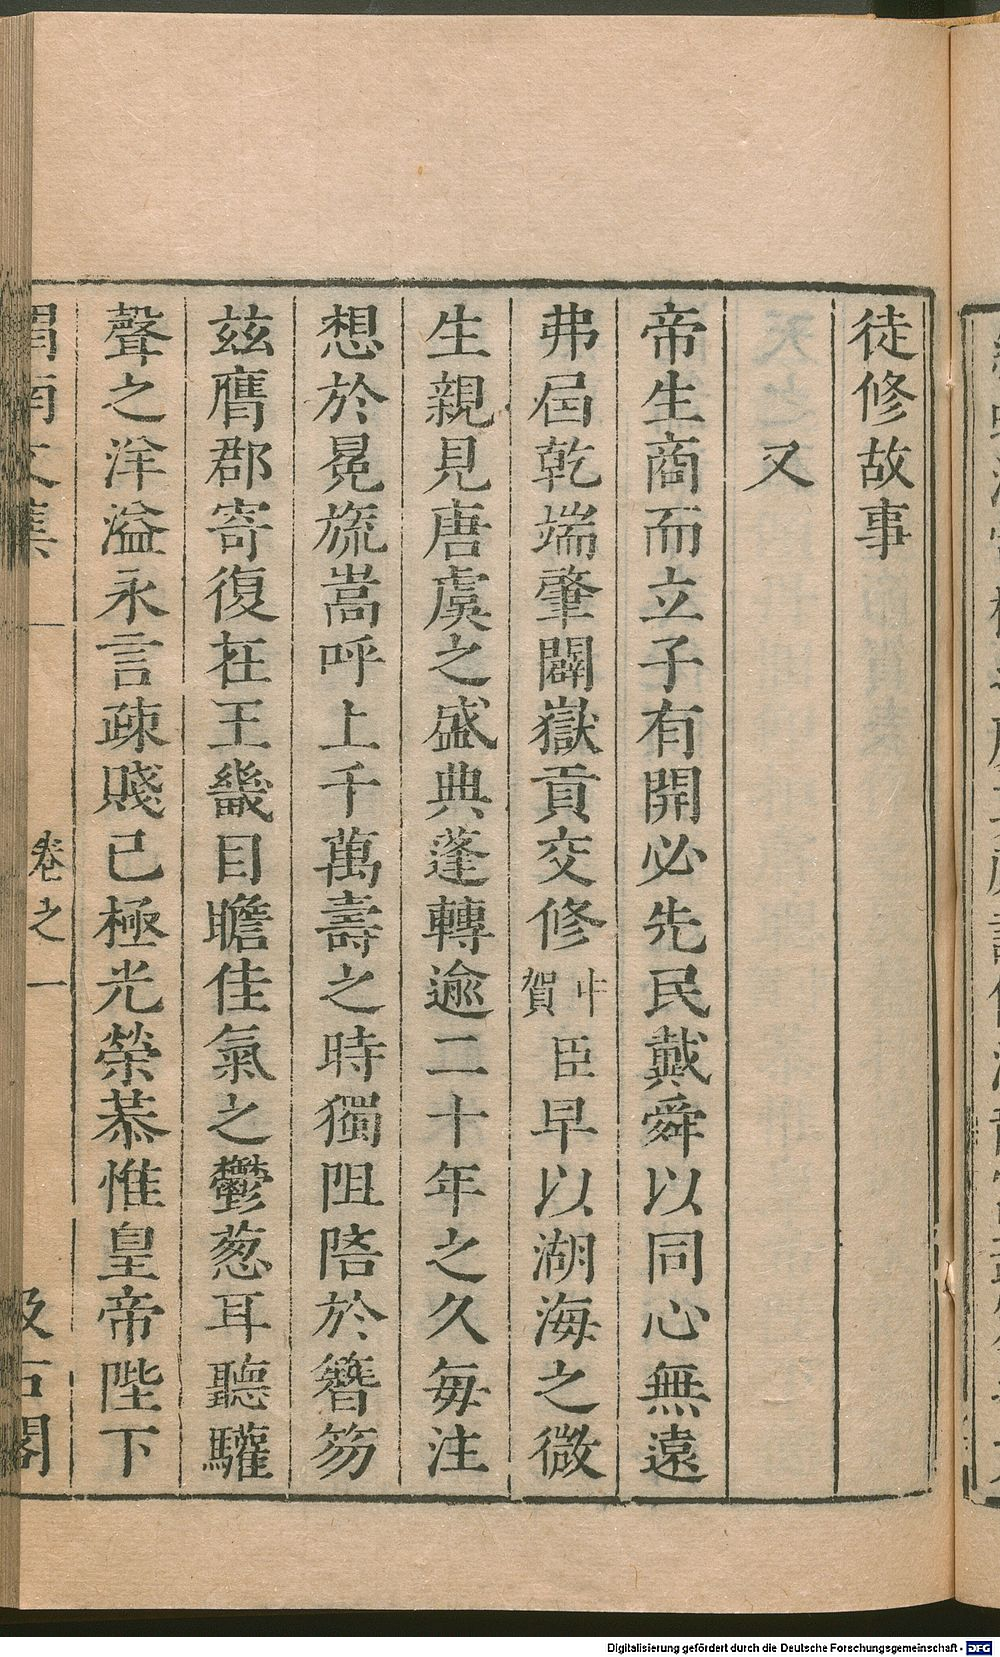 徒修故事
又
帝生商而立子有開必先民戴舜以同心無遠
弗屆乾端肇闢嶽貢交修中賀臣早以湖海之微
生親見唐虞之盛典蓬轉逾二十年之久每注
想於冕旒嵩呼上千萬壽之時獨阻陪於簪笏
玆膺郡寄復在王畿目瞻佳氣之鬱葱耳聽驩
聲之洋溢永言疎賤已極光榮恭惟皇帝陛下
渭南文集 卷之一 汲古閣
Digitalisierung gefördert durch die Deutsche Forschungsgemeinschaft - DFG